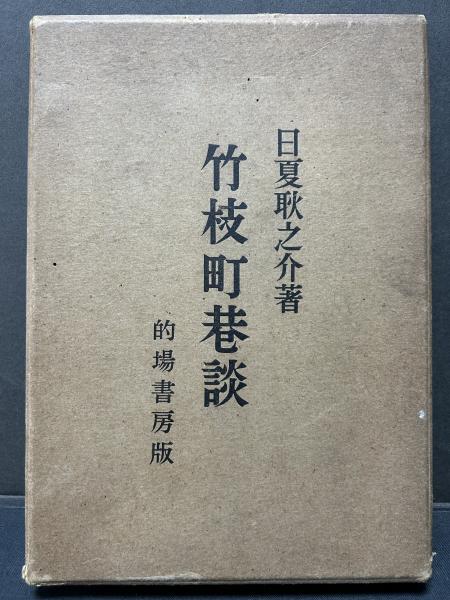 日夏耿之介著
竹枝町巷談
的場書房版